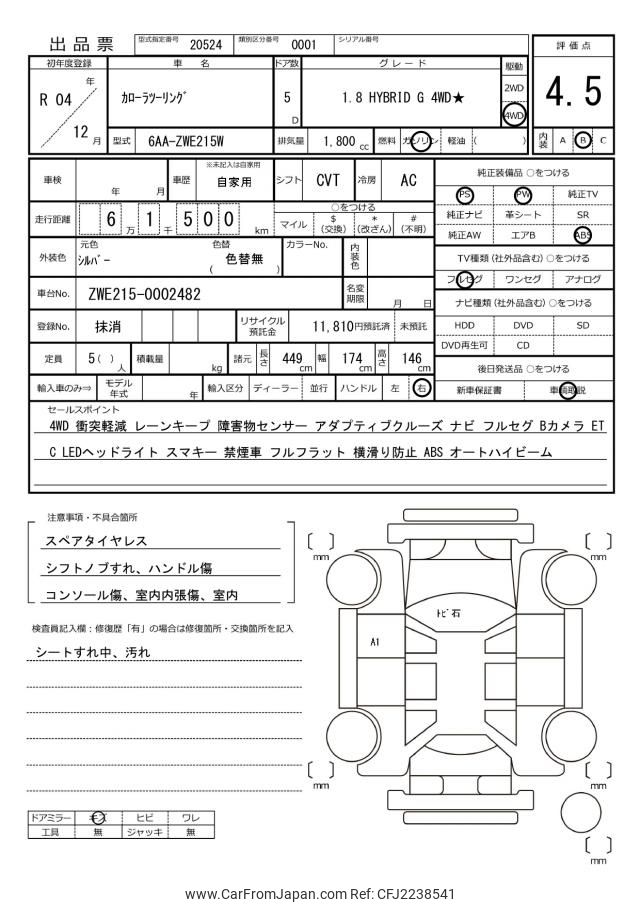 出品票 型式指定番号 20524 類別区分番号 0001 シリアル番号
評価点
4.5
内装 A B C
初年度登録 車名 ドア数 グレード 駆動
R 04 年 12 月
カローラツーリング 5 D 1.8 HYBRID G 4WD★ 2WD 4WD
型式 6AA-ZWE215W 排気量 1,800 cc 燃料 ガソリン 軽油 ( )
車検 年 月 車歴 ※未記入は自家用 自家用 シフト CVT 冷房 AC
走行距離 6 万 1 千 5 0 0 km
○をつける
マイル $(交換) *(改ざん) #(不明)
外装色 元色 シルバー 色替 ( 色替無 ) カラーNo. 内装色
車台No. ZWE215-0002482 名変期限 月 日
登録No. 抹消 リサイクル預託金 11,810円預託済 未預託
定員 5( ) 人 積載量 kg 諸元 長さ 449 cm 幅 174 cm 高さ 146 cm
輸入車のみ⇒ モデル年式 年 輸入区分 ディーラー 並行 ハンドル 左 右
純正装備品 ○をつける
PS PW 純正TV
純正ナビ 革シート SR
純正AW エアB ABS
TV種類(社外品含む) ○をつける
フルセグ ワンセグ アナログ
ナビ種類(社外品含む) ○をつける
HDD DVD SD
DVD再生可 CD
後日発送品 ○をつける
新車保証書 車輌取説
セールスポイント
4WD 衝突軽減 レーンキープ 障害物センサー アダプティブクルーズ ナビ フルセグ Bカメラ ET
C LEDヘッドライト スマキー 禁煙車 フルフラット 横滑り防止 ABS オートハイビーム
注意事項・不具合箇所
スペアタイヤレス
シフトノブすれ、ハンドル傷
コンソール傷、室内内張傷、室内
検査員記入欄：修復歴「有」の場合は修復箇所・交換箇所を記入
シートすれ中、汚れ
ドアミラー キズ ヒビ ワレ
工具 無 ジャッキ 無
mm
mm
トビ石
A1
mm
mm
mm
www.CarFromJapan.com Ref: CFJ2238541